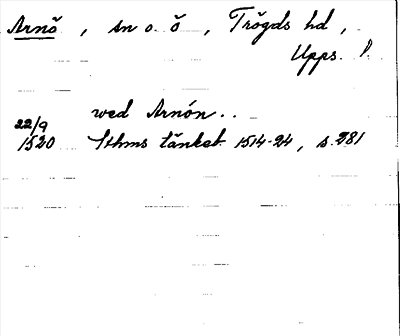 Arnö, sn o. ö, Trögds hd,
Upps. l.
wed Arnön..
22/9
1520 Sthms tänkeb. 1514-24, s. 281